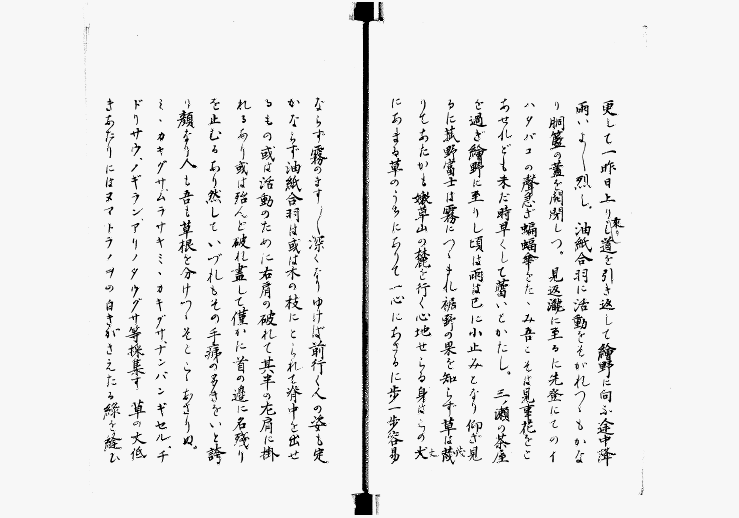 更して一昨日上り来りし道を引き返して繪野に向ふ途中降
雨いよ〱烈し。油紙合羽に活動をそがれつゝもかな
り胴籃の蓋を開閉しつ。見返瀧に至るに先登にてのイ
ハタバコの聲急ぎ蝙蝠傘をたゝみ吾こそは見事花をと
あせれども未だ時早くして蕾いとかたし。三ノ瀬の茶屋
を過ぎ繪野に至りし頃は雨は已に小止みとなり仰ぎ見
るに菰野富士は霧につゝまれ裾野の果を知らず草は茂
りてあたかも嫩草山の麓を行く心地せらる身はこの大
にあまる草のうちにありて一心にあさるに歩一歩容易
ならず霧のます〱深くなりゆけば前行く人の姿も定
かならず油紙合羽は或は木の枝にとられて脊中を出せ
るもの或は活動のために右肩の破れて其半の左肩に掛
れるあり或は殆んど破れ盡して僅かに首の邊に名残り
を止むるあり然していづれもその手痛の多きをいと誇
り顔なり人も吾も草根を分けつゝそここゝあさりぬ。
ミヽカキグサ、ムラサキミヽカキグサ、ナンバンギセル、チ
ドリサウ、ノギラン、アリノタウグサ等採集す 草の丈低
きあたりにはヌマトラノヲの白きがさえたる緑を縫ひ